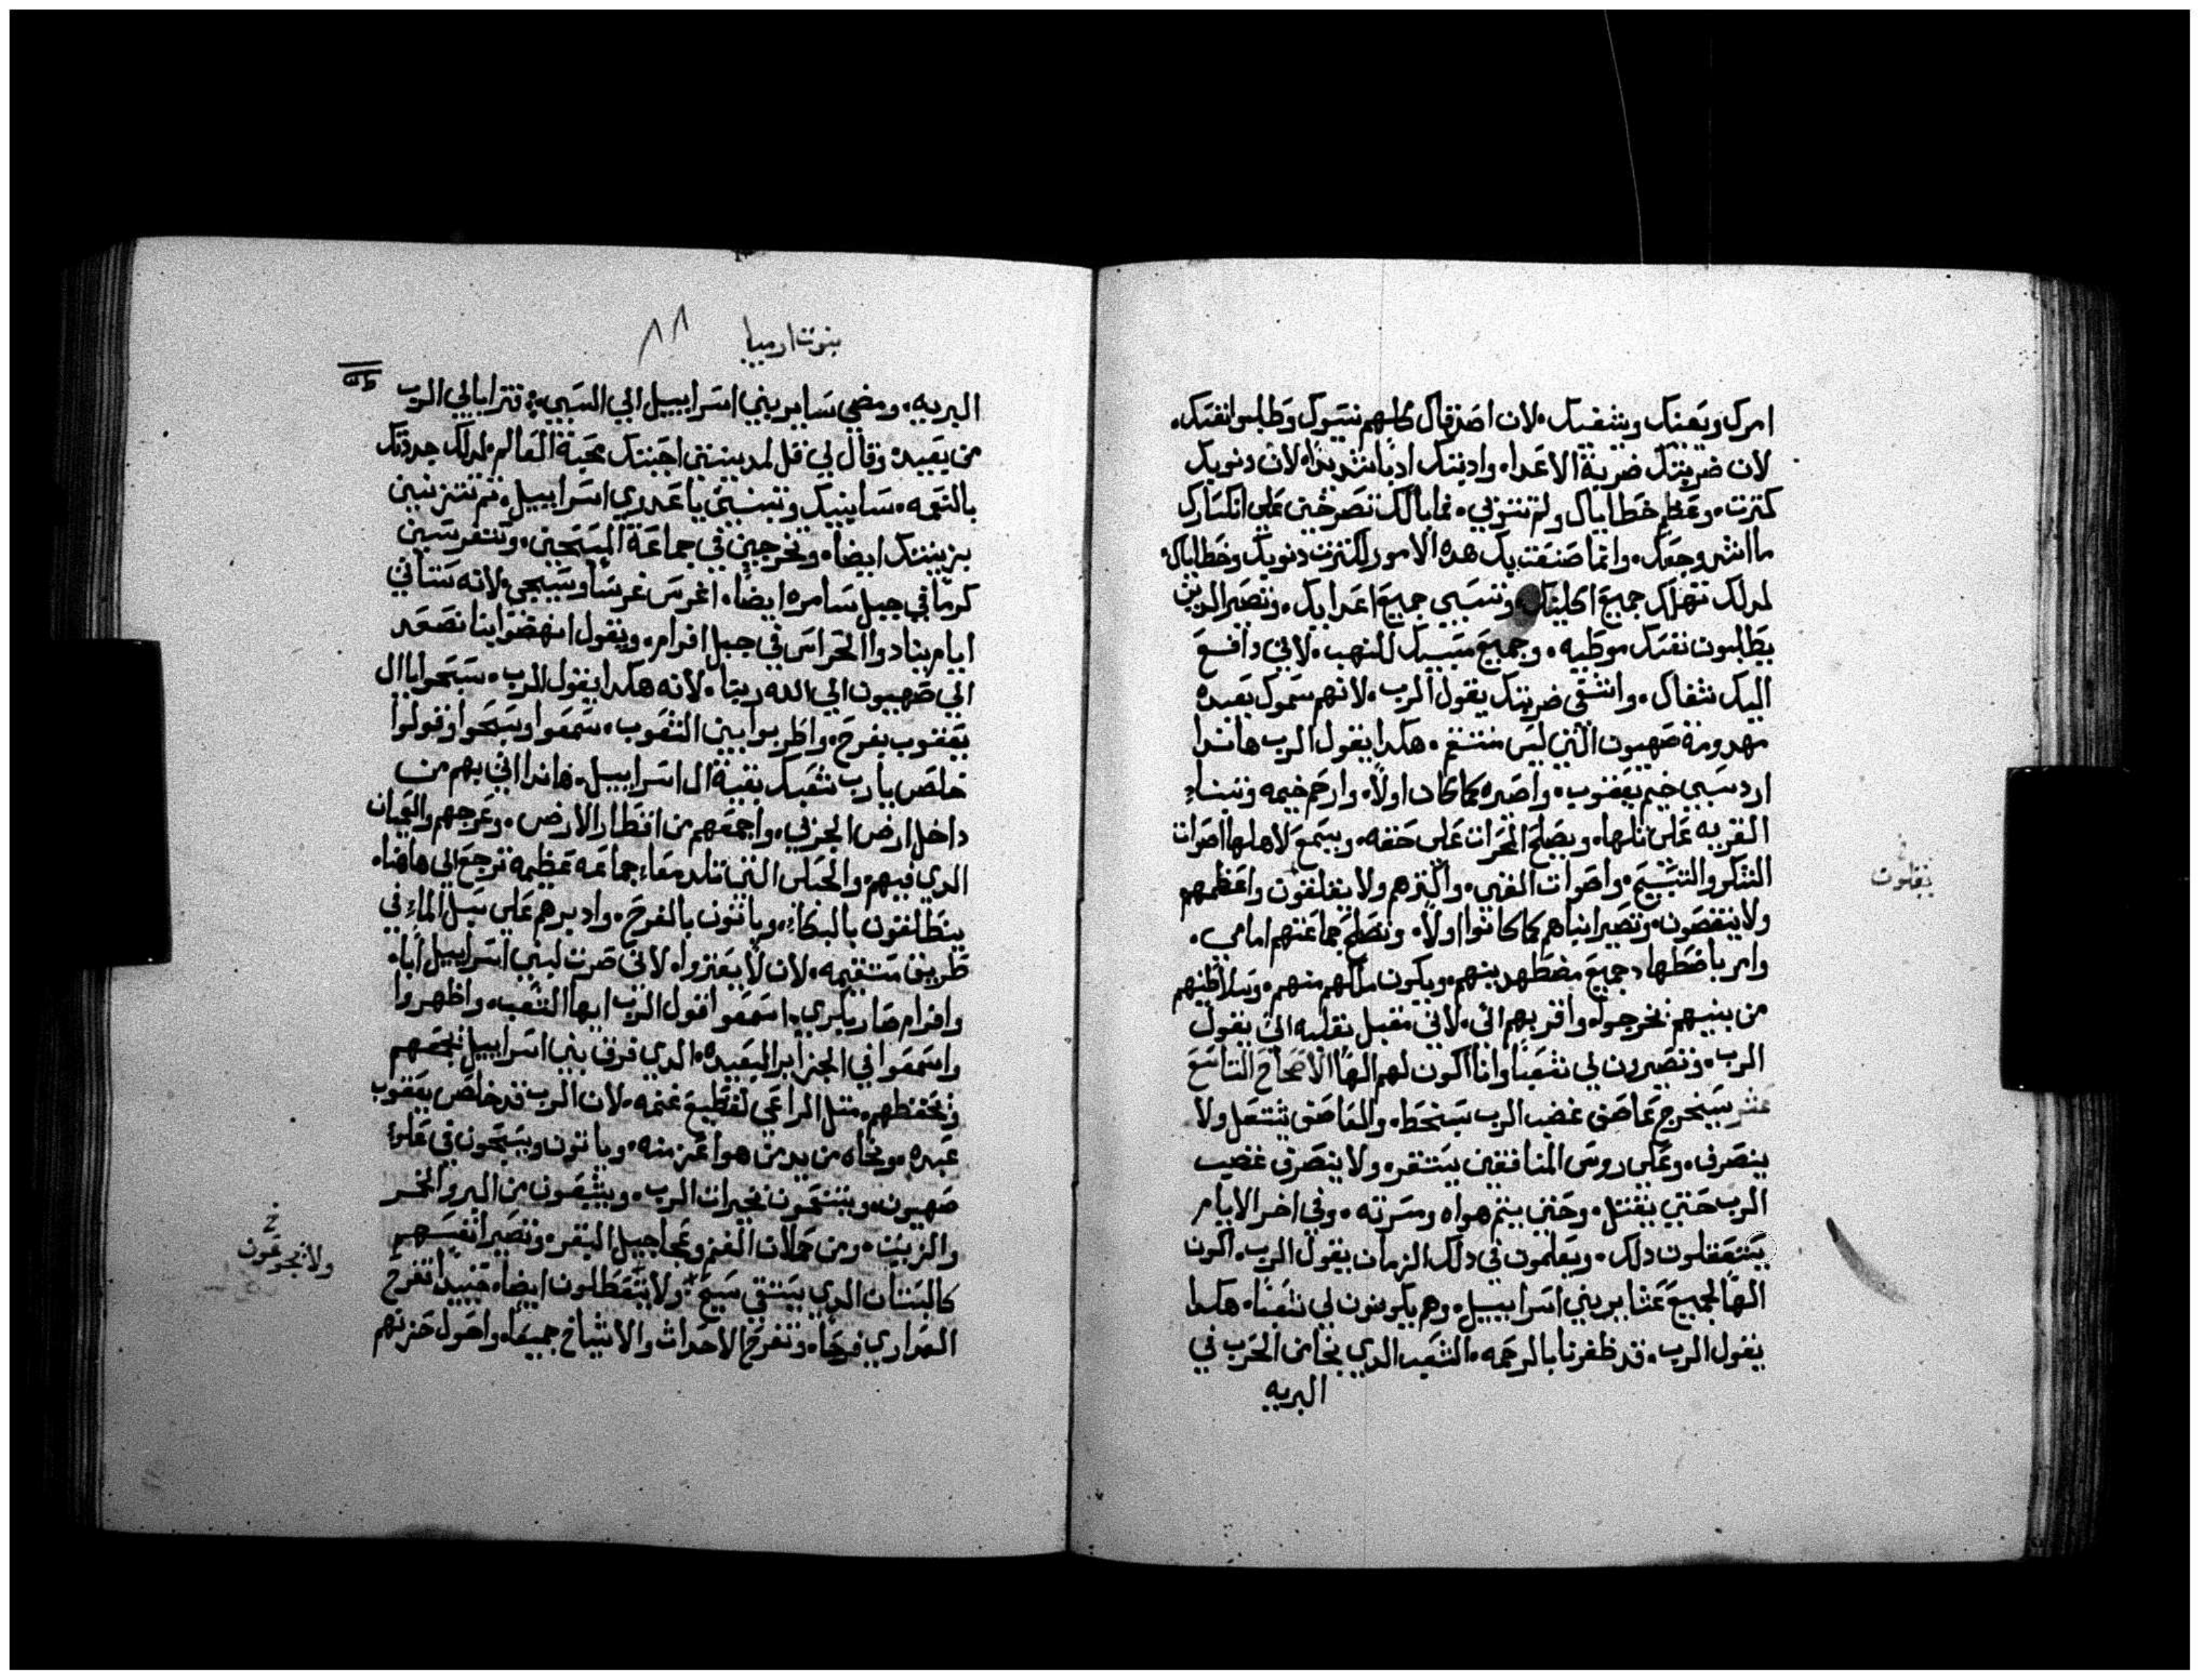 امرك وتعنك ويشفيك. لان اصدقاك كلهم نسوك وطلبوا نفسك.
لان ضربتك ضربة الاعدا. وادبتك ادبا شديدا لان دنوبك
كترت. وعظم خطاياك ولم تتوبي. فما بالك تصرخين علي انكسارك
ما اشر وجعك. وانما صنعت بك هده الامور لكترت دنوبك وخطاياك.
لدلك تهلك جميع اكليك وتسبي جميع اعدايك. وتصير الدين
يطلبون نفسك موطيه. وجميع مسبيك للنهب. لاني دافع
اليك شفاك. وانتفي ضربتك يقول الرب. لانهم سموك بعيده
مهدومة صهيون التي ليس منتفع. هكدا يقول الرب هاندا
ارد سبي خيم يعقوب. واصيره كما كان اولا. وارحم خيمه وتبناء
القريه علي تلها. ويصلح المحراب علي حقه. ويسمع لاهلها اصوات
التذكر والتسبيح. واصوات الغنى. واكترهم ولا يقلقون واعظمهم
ولا ينتقصون. وتصير ابناهم كما كانوا اولا. وتصلح جماعتهم امامي.
وامر باضطهاد جميع مضطهدينهم. ويكون ملكهم منهم. وسلاطينهم
من بينهم يخرجوا. واقربهم الي. لاني مقبل بقلبه الي يقول
الرب. وتصيرون لي شعبا وانا اكون لهم الها الاصحاح التاسع
عشر سيخرج عاصف غضب الرب بسخط. والعاصف يشتعل ولا
ينصرف. وعلي روس المنافقين يستقر. ولا ينصرف غضب
الرب حتي يقتل. وحتي يتم هواه ومسرته. وفي اخر الايام
يتعقلون دلك. ويعلمون في دلك الزمان يقول الرب. اكون
الها لجميع عشاير بني اسراييل. وهم يكونون لي شعبا. هكدا
يقول الرب. قد ظفرنا بالرحمه. الشعب الدي نجا من الحرب في
البريه
يقلون
نبوت ارميا ٨٨
البريه. ومضي ساير بني اسراييل الي السبي. تترايا لي الرب
من بعيد. وقال لي قل لمدينتي احببتك محبة العالم. لدلك جددتك
بالنعمه. سابنيك وتبنين يا عدري اسراييل. تم تتزينين
بزينتك ايضا. وتخرجين في جماعة المسبحين. وتتغرسين
كرما في جبل سامره ايضا. اغرس غرسا وسبحي. لانه ستاتي
ايام ينادوا الحراس في جبل افرام. ويقول انهضوا بنا نصعد
الي صهيون الي الله ربنا. لانه هكدا يقول الرب. سبحوا يا ال
يعقوب بفرح. واطربوا بين الشعوب. سمعوا وسبحوا وقولوا
خلص يا رب شعبك بقية ال اسراييل. هاندا اتي بهم من
داخل ارض الجربي. واجمعهم من اقطار الارض. وعرجهم والعميان
الدي فيهم. والحبلي التي تلد معا. جماعه عظيمه ترجع الي هاهنا.
ينطلقون بالبكاء. وياتون بالفرح. وادبرهم علي سبل الماء في
طريق مستقيمه. لان لا يعتروا. لاني صرت لبني اسراييل ابا.
وافرام صار بكري. اسمعوا قول الرب ايها الشعب. واظهروا
واسمعوا في الجزاير البعيده. الدي فرق بني اسراييل يجمعهم
ويحفظهم. متل الراعي لقطيع غنمه. لان الرب قد خلص يعقوب
عبده. ونجاه من يد من هو اعز منه. وياتون ويسبحون في علوا
صهيون. ويتنعمون بخيرات الرب. ويشبعون من البر والخمر
والزيت. ومن حملان الغنم وعجاجيل البقر. وتصير انفسهم
كالبستان الدي يستقي سيح. ولا يتعطلون ايضا. حينيد تفرح
العداري فرحا. وتفرح الاحداث والاشياخ جميعا. واحول حزنهم
ولا يجوعون